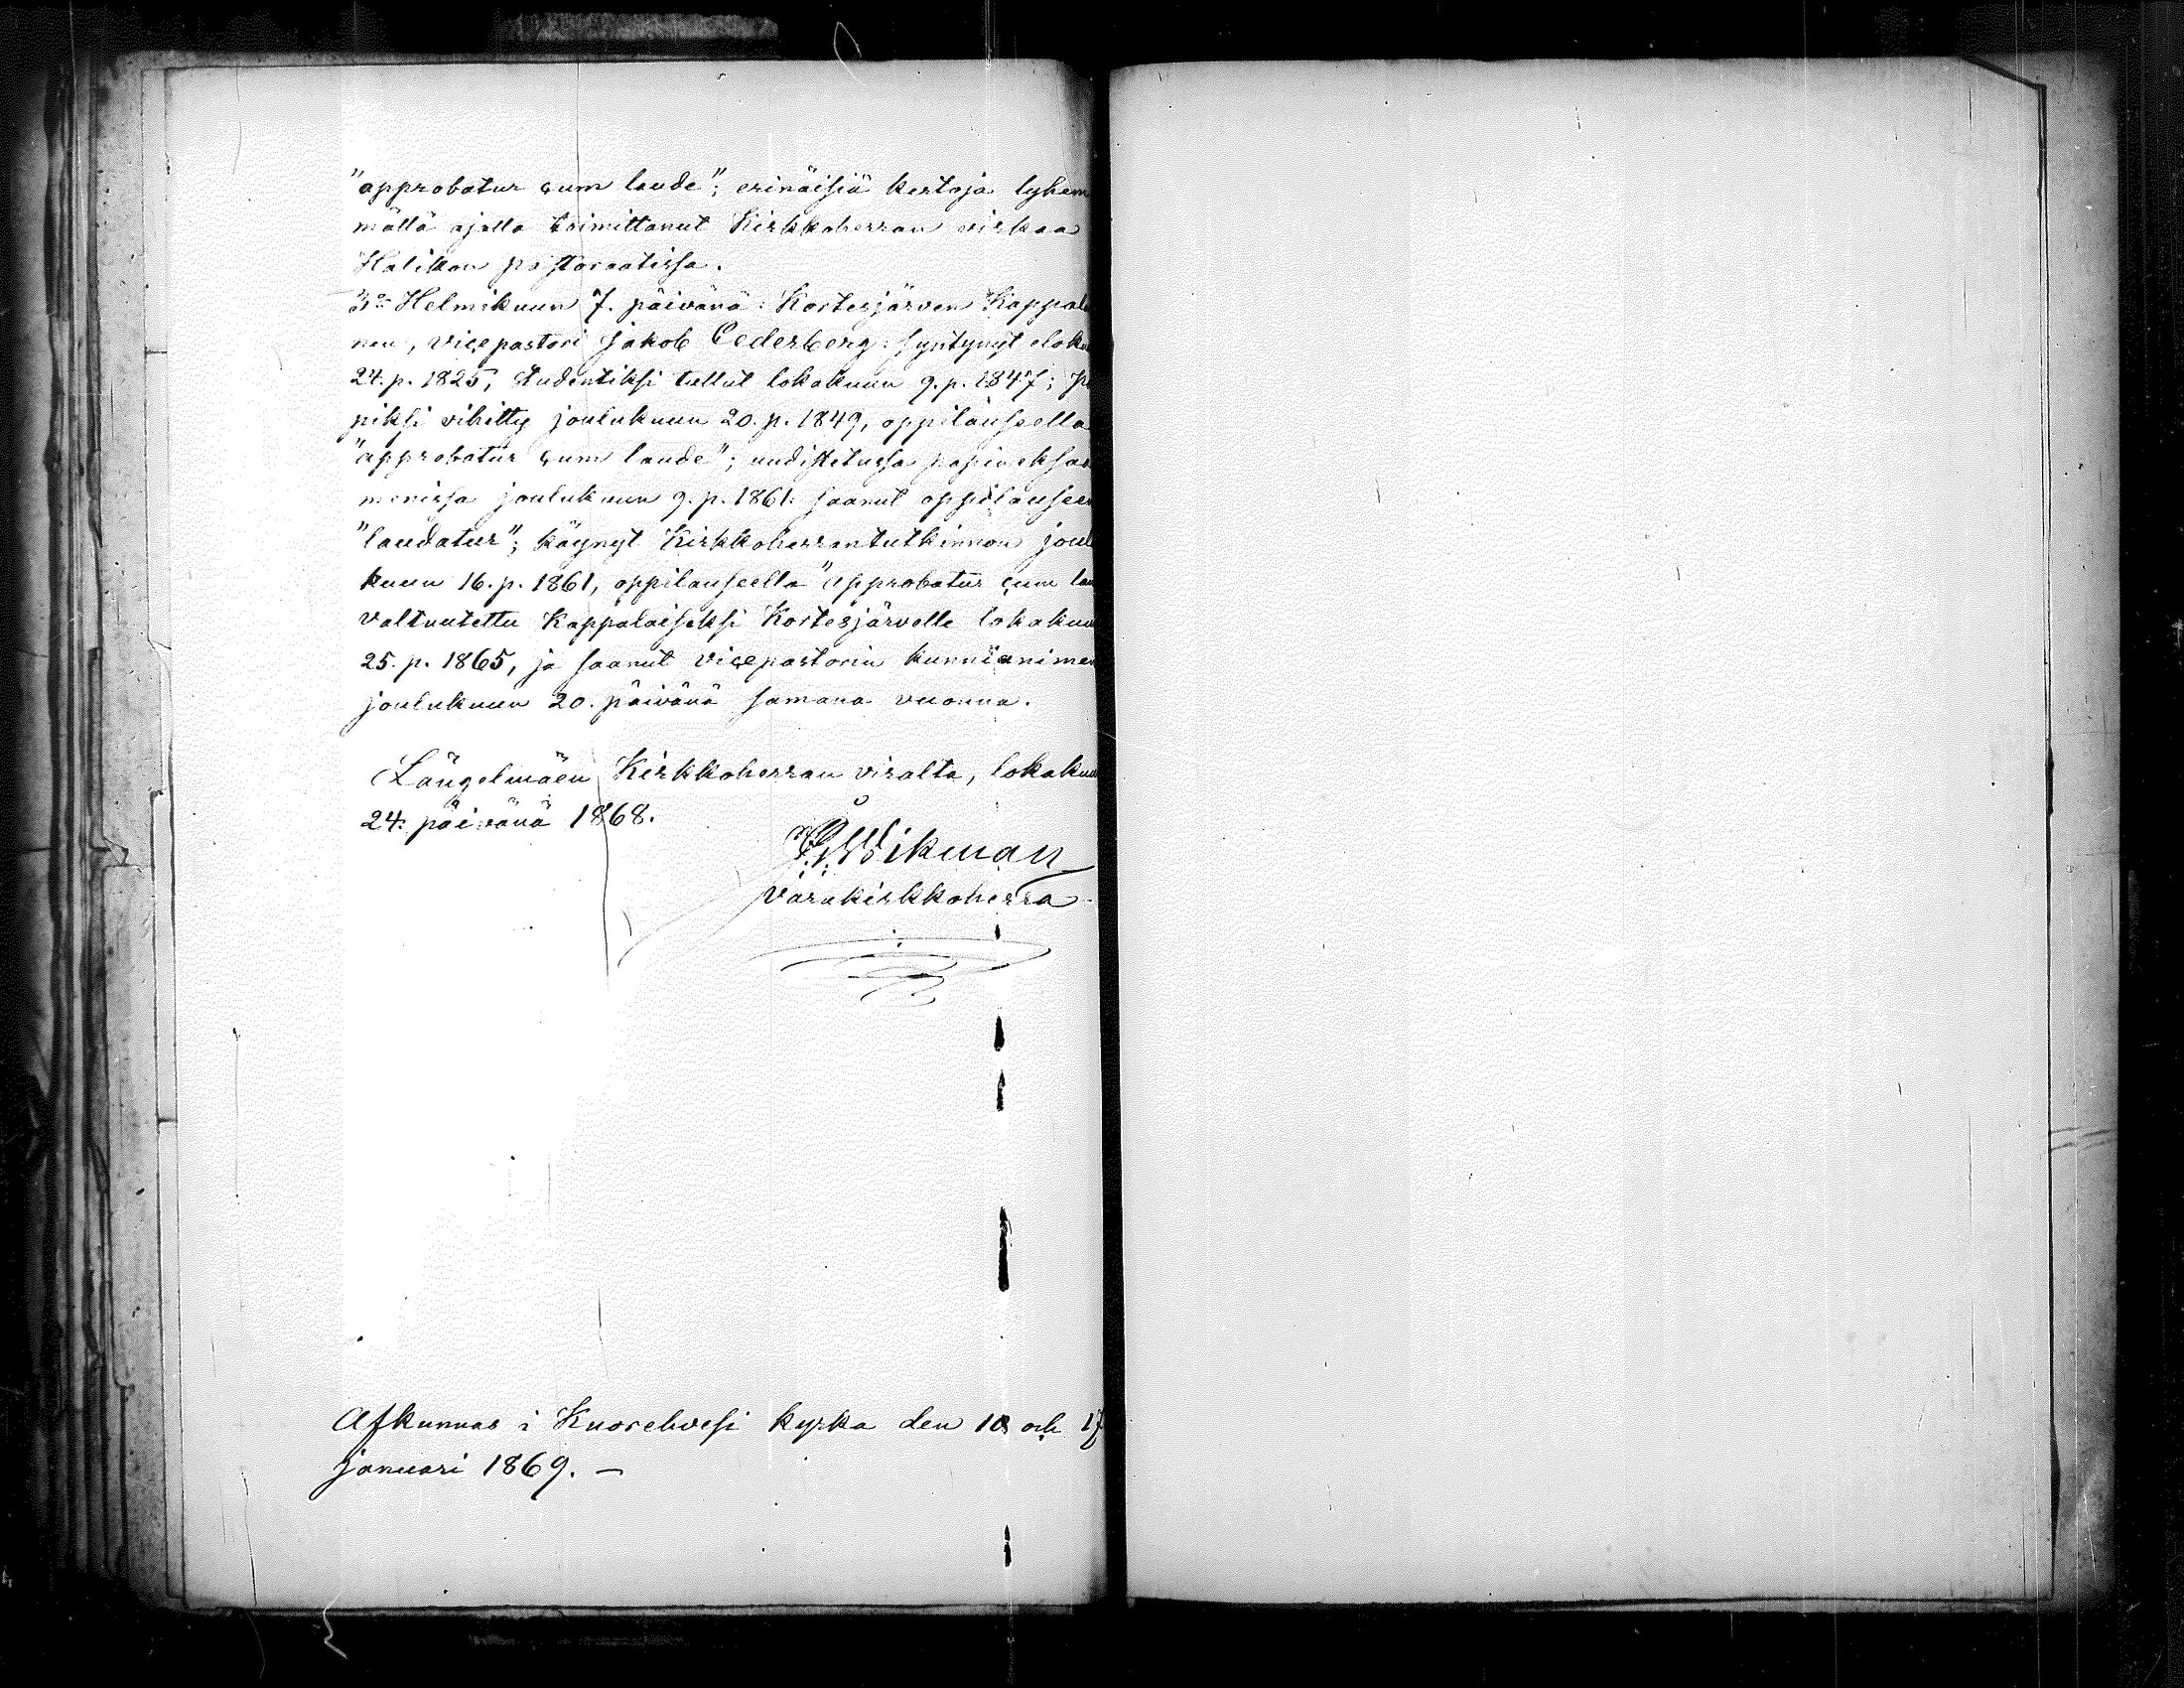 "approbatur cum laude"; erinäisiä kertoja lyhem
mällä ajalla toimittanut Kirkkoherran virkaa
Halikon pastoraatissa.
3o Helmikuun 7. päivänä: Kortesjärven Kappala
nen, vicepastori Jakob Cederberg: syntynyt eloku
24. p. 1825, studentiksi tullut lokakuun 9. p. 1847; pa
piksi vihitty joulukuun 20. p. 1849, oppilauseella
"approbatur cum laude"; uudistetussa papin eksa
menissa joulukuun 9. p. 1861. saanut oppilauseen
"laudatur"; käynyt Kirkkoherrantutkinnon joul
kuun 16. p. 1861, oppilauseella "approbatur cum lau
valtuutettu Kappalaiseksi Kortesjärvelle lokakuu
25. p. 1865, ja saanut vicepastorin kunnianimen
joulukuun 20. päivänä samana vuonna.
Längelmäen Kirkkoherran viralta, lokakuu
24. päivänä 1868.
Wikman
Varakirkkoherra
Afkunnas i Kuorehvesi kyrka den 10 och 17
januari 1869. —